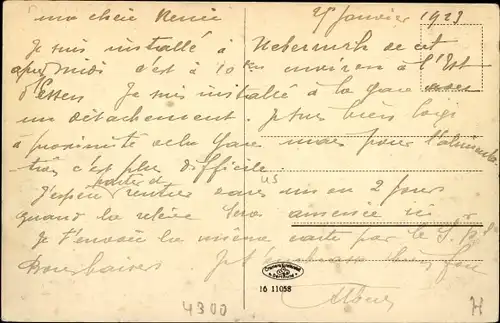 ma chère Renée
25 Janvier 1923
Je suis installé à de cet
après midi c'est à 10 km environ à l'Est
d'Essen Je suis installé à la gare avec
un détachement. Je suis bien logé
à proximité de la Gare mais pour l'alimenta-
tion c'est plus difficile.
J'espère rentrer dans un ou 2 jours
quand la relève sera amenée ici
Je t'envoie la même carte par le
Bons baisers. Je t'embrasse bien fort
16 11058
4300
H